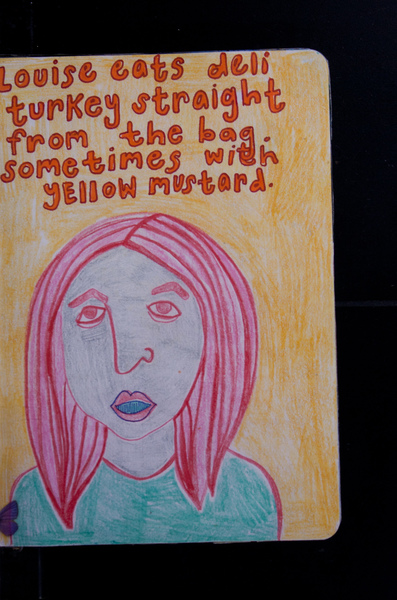 Louise eats deli
turkey straight
from the bag.
sometimes with
YELLOW mustard.